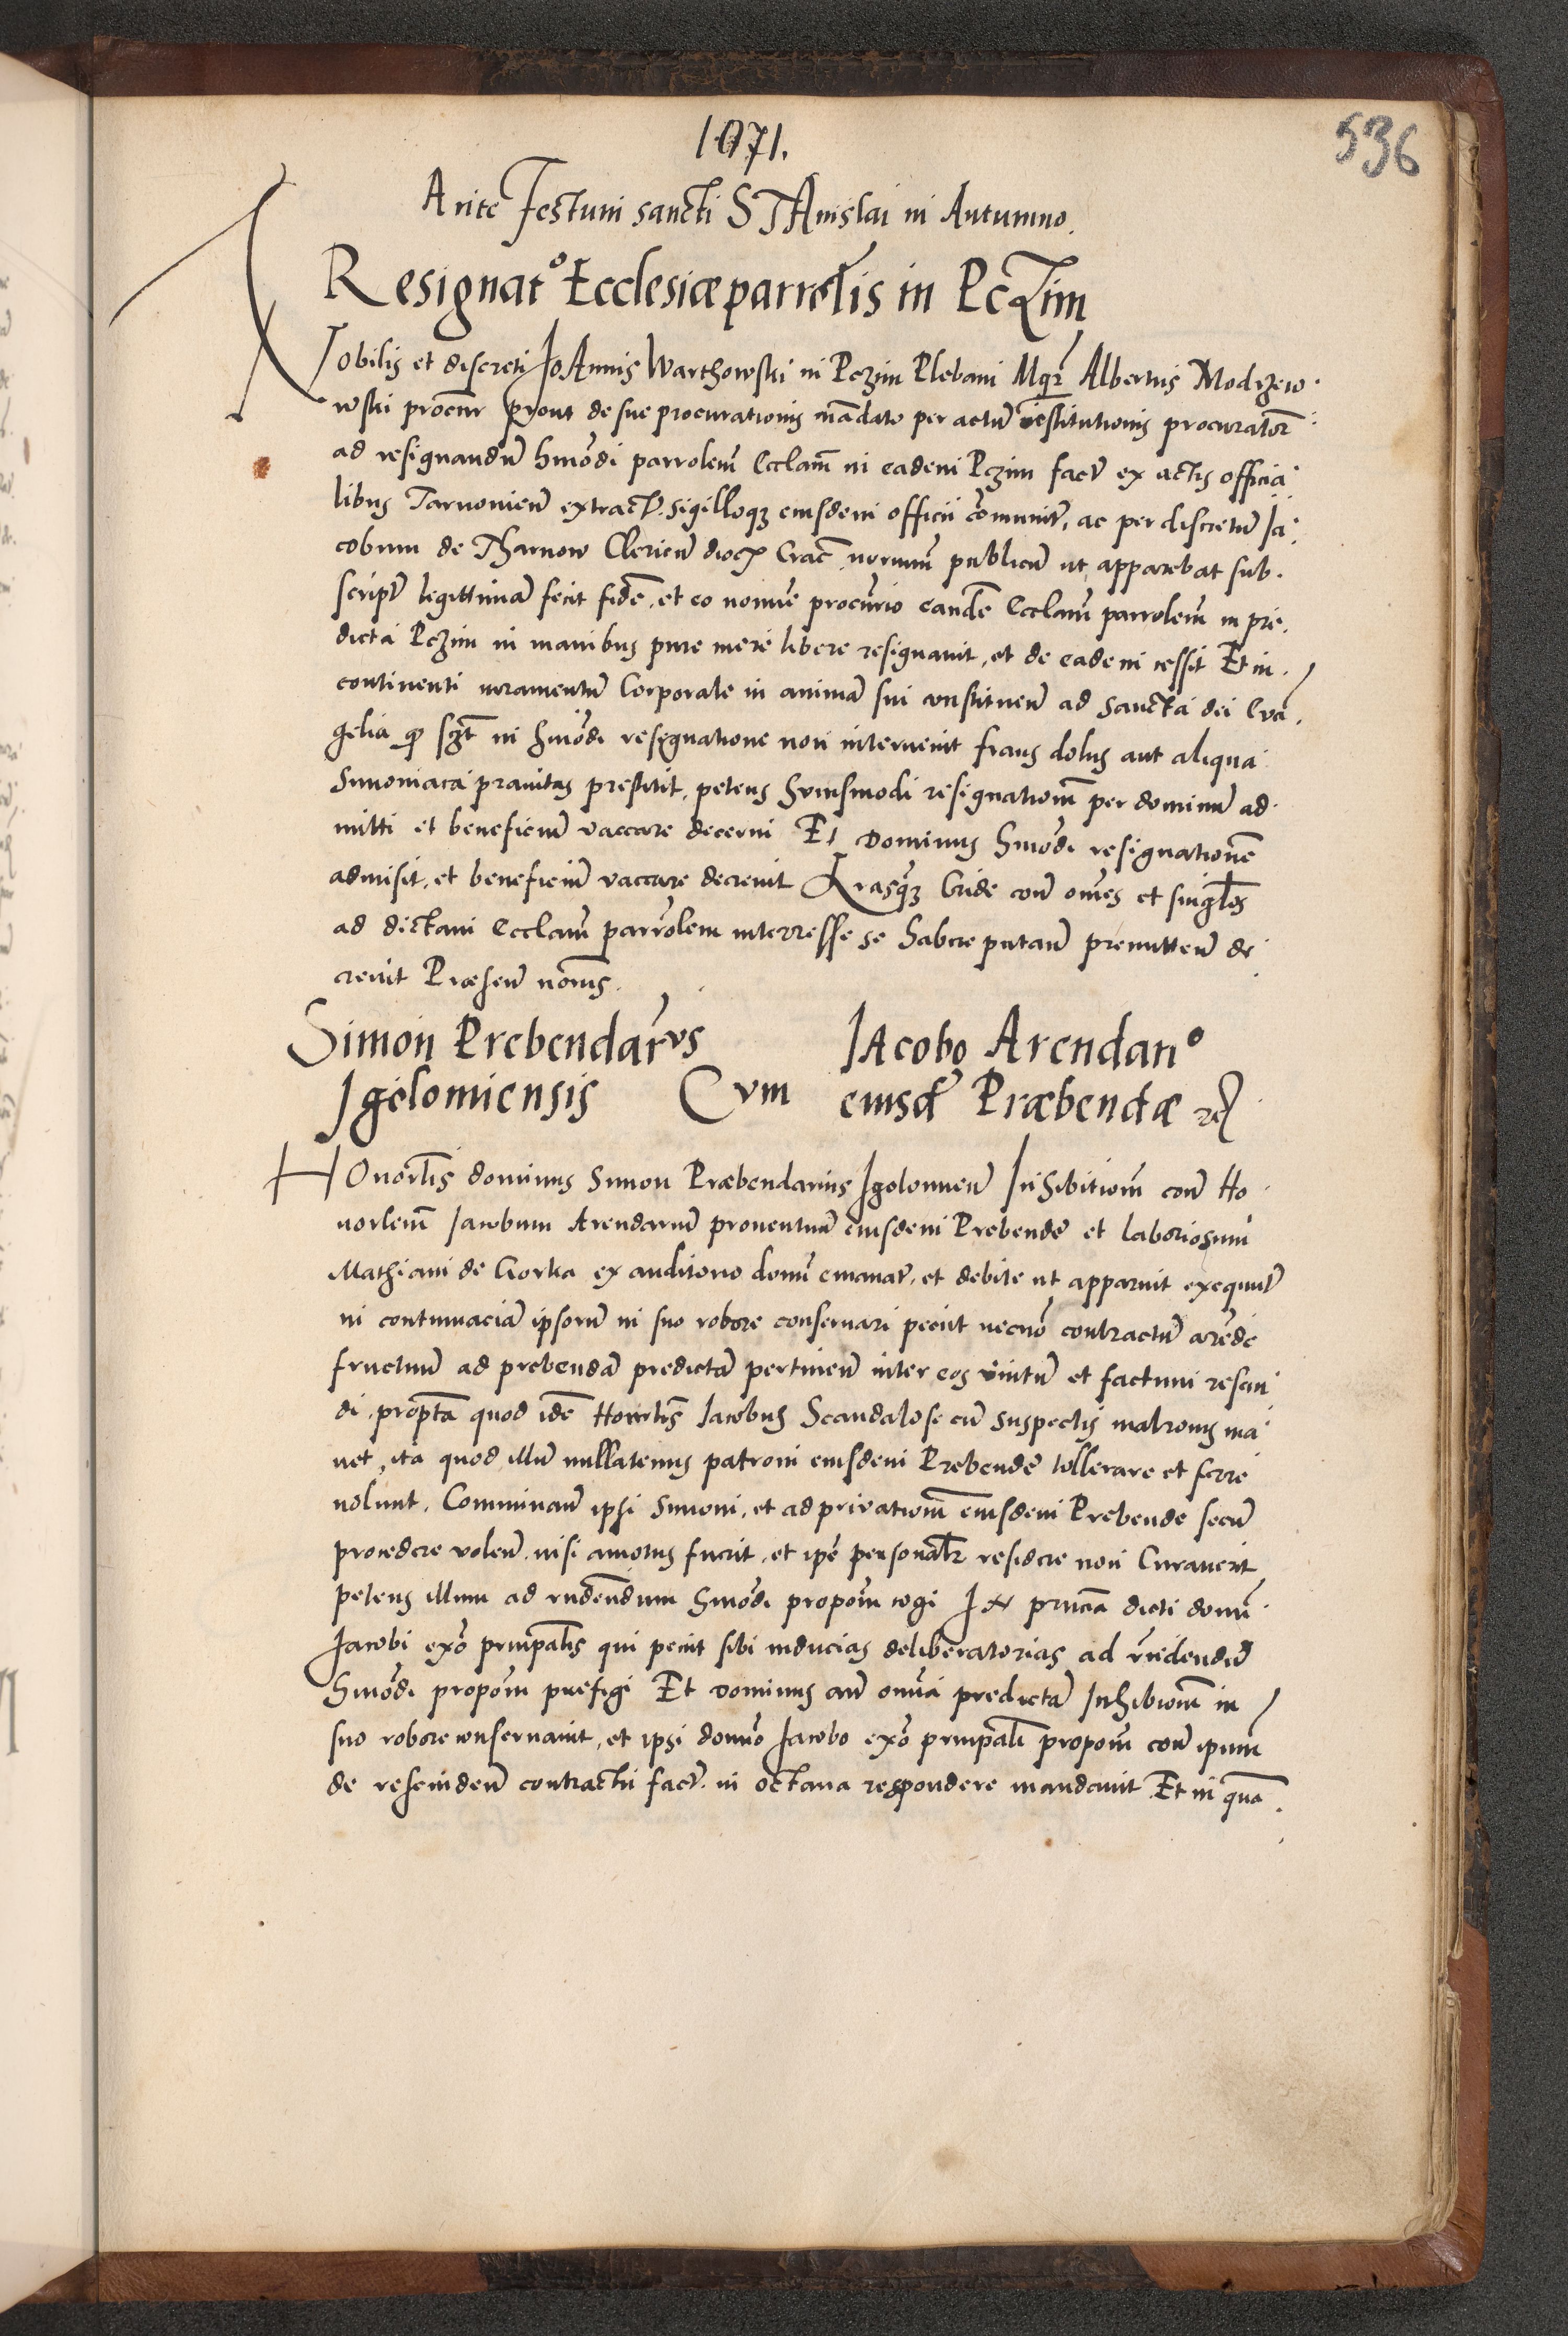 1071.
536
Ante Festum sancti STAnislai in Autumno.
Resignato Ecclesiæ parrolis in PcZim
Nobilis et discreti JoAnnis Warthowski in Pczim Plebani Mgr Albertus Modrzew
wski procur prout de sue procurationis mādato per actū institutionis procurator
ad resignandū hmōdi parrolem Ecclam in eadem Pczim fact ex actis officia
libus Tarnovien extract. sigilloqz eiusdem officii cōmunit, ac per discretū Ja
cobum de Tharnow Clericū dioc Crac. notarium publicū ut apparebat sub
script legittimā fecit fidē, et eo nomine procurio eandē Ecclam parrolem in pre
dicta Pczim in manibus pure mere libere resignavit, et de eadem cessit Et in
continenti iuramentū Corporale in animā sui constituen ad sancta dei Eva
gelia qp in hmōdi resignatione non intervenit fraus dolus aut aliqua
Simoniaca pravitas prestitit, petens huiusmodi resignationem per dominū ad
mitti et beneficiū vaccare decerni Et Dominus hmōdi resignationē
admisit, et beneficiū vaccare decrevit Lrasqz Cride con omēs et singlos
ad dictam Ecclam parrolem interresse se habere putan premitten de
crevit Præsen nonis.
Simon Prebendarvs Jacobo Arendano
Igolomiensis Cvm eiusd Præbendæ
HOnorlis dominus Simon Præbendarius Igolomien Inhibitionem con Ho
norlem Jacobum Arendariū proventuū eiusdem Prebende et laboriosum
Mathiam de Gorka ex auditorio domi emanat, et debite ut apparuit exequut
in contumaciā ipsorū in suo robore conservari peciit necnō contractū arēde
fructuum ad prebendā predictā pertinen inter eos initū et factum rescin
di, proptea quod idē Honorlis Jacobus Scandalose cū suspectis matronis ma
net, ita quod illū nullatenus patroni eiusdem Prebende tollerare et ferre
volunt. Comminan ipsi Simoni, et ad privationem eiusdem Prebende secū
procedere volen. nisi amotus fuerit, et ipē personalr residere non Curaverit
petens illum ad rndendum hmōdi propoīm cogi In pncia dicti domi
Jacobi exō prinpalis qui peciit sibi inducias deliberatorias ad rndendū
hmōdi propoīm prefigi Et dominus an omīa predictā Inhibionem in
suo robore conservavit, et ipsi domīo Jacobo exō prinpali propoīm con ipum
de rescinden contractu fact. in octava respondere mandavit Et in quā